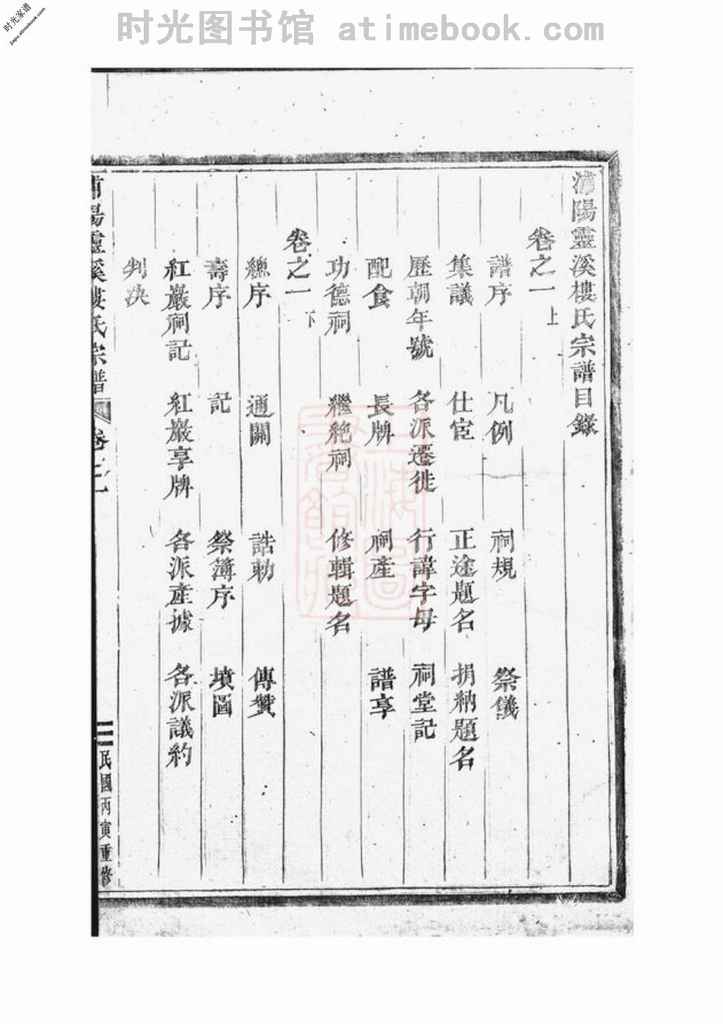 时光图书馆 atimebook.com
时光家谱
jiapu.atimebook.com
浦陽靈溪樓氏宗譜目錄
卷之一上
譜序 凡例 祠規 祭儀
集議 仕宦 正途題名 捐納題名
歷朝年號 各派遷徙 行諱字母 祠堂記
配食 長牌 祠產 譜享
功德祠 繼絶祠 修輯題名
卷之一下
總序 通關 誥勅 傳贊
壽序 記 祭簿序 墳圖
紅巖祠記 紅巖享牌 各派產據 各派議約
判決
浦陽靈溪樓氏宗譜 卷之一 民國丙寅重修